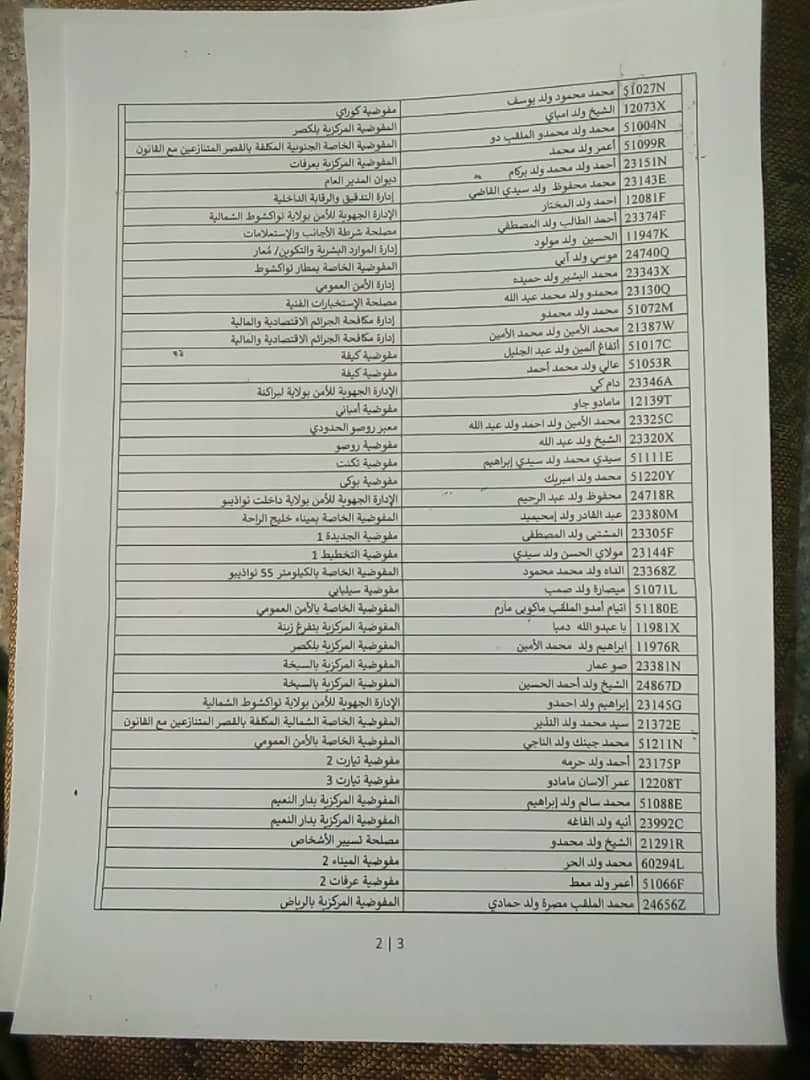 51027N محمد محمود ولد يوسف مفوضية كوراي
12073X الشيخ ولد امباي المفوضية المركزية بلكصر
51004N محمد ولد محمدو الملقب دو المفوضية الخاصة الجنوبية المكلفة بالقصر المتنازعين مع القانون
51099R أعمر ولد محمد المفوضية المركزية بعرفات
23151N أحمد ولد محمد ولد بركام ديوان المدير العام
23143E محمد محفوظ ولد سيدي القاضي إدارة التدقيق والرقابة الداخلية
12081F احمد ولد المختار الإدارة الجهوية للأمن بولاية نواكشوط الشمالية
23374F أحمد الطالب ولد المصطفي مصلحة شرطة الأجانب والإستعلامات
11947K الحسين ولد مولود إدارة الموارد البشرية والتكوين/ مُعار
24740Q موسي ولد آبي المفوضية الخاصة بمطار نواكشوط
23343X محمد البشير ولد حميده إدارة الأمن العمومي
23130Q محمدو ولد محمد عبد الله مصلحة الإستخبارات الفنية
51072M محمد ولد محمدو إدارة مكافحة الجرائم الاقتصادية والمالية
21387W محمد الأمين ولد محمد الأمين إدارة مكافحة الجرائم الاقتصادية والمالية
51017C أتفاغ ألمين ولد عبد الجليل مفوضية كيفة
51053R عالي ولد محمد أحمد مفوضية كيفة
23346A دام كي الإدارة الجهوية للأمن بولاية لبراكنة
12139T مامادو جاو مفوضية أمباني
23325C محمد الأمين ولد احمد ولد عبد الله معبر روصو الحدودي
23320X الشيخ ولد عبد الله مفوضية روصو
51111E سيدي محمد ولد سيدي إبراهيم مفوضية تكنت
51220Y محمد ولد امبريك مفوضية بوكى
24718R محفوظ ولد عبد الرحيم الإدارة الجهوية للأمن بولاية داخلت نواذيبو
23380M عبد القادر ولد إمحيميد المفوضية الخاصة بميناء خليج الراحة
23305F المشتبى ولد المصطفى مفوضية الجديدة 1
23144F مولاي الحسن ولد سيدي مفوضية التخطيط 1
23368Z الداه ولد محمد محمود المفوضية الخاصة بالكيلومتر 55 نواذيبو
51071L ميصارة ولد صمب مفوضية سيلبابي
51180E اتيام أمدو الملقب ماكوبي مارم المفوضية الخاصة بالأمن العمومي
11981X با عبدو الله دمبا المفوضية المركزية بتفرغ زينة
11976R ابراهيم ولد محمد الأمين المفوضية المركزية بلكصر
23381N صو عمار المفوضية المركزية بالسبخة
24867D الشيخ ولد أحمد الحسين المفوضية المركزية بالسبخة
23145G إبراهيم ولد احمدو الإدارة الجهوية للأمن بولاية نواكشوط الشمالية
21372E سيد محمد ولد النذير المفوضية الخاصة الشمالية المكلفة بالقصر المتنازعين مع القانون
51211N محمد جينك ولد الناجي المفوضية الخاصة بالأمن العمومي
23175P أحمد ولد حرمه مفوضية تيارت 2
12208T عمر آلاسان مامادو مفوضية تيارت 3
51088E محمد سالم ولد إبراهيم المفوضية المركزية بدار النعيم
23992C أنيه ولد الفاغه المفوضية المركزية بدار النعيم
21291R الشيخ ولد محمدو مصلحة تسيير الأشخاص
60294L محمد ولد الحر مفوضية الميناء 2
51066F أعمر ولد معط مفوضية عرفات 2
24656Z محمد الملقب مصرة ولد حمادي المفوضية المركزية بالرياض
2 | 3